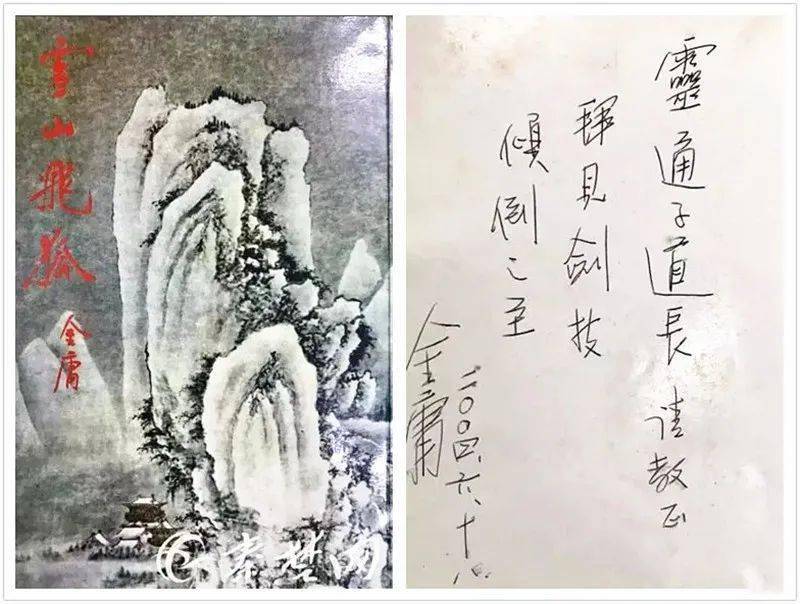 雪山飛狐
金庸
秦楚网
靈通子道長 请教正
見劍技
傾倒之至
二〇〇四、六、十八
金庸